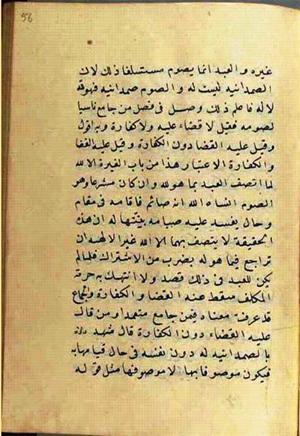 56
غيره والعبد انما يصوم مستسلفا ذلك لان
الصمدانيه ليست له والصوم صمدانيه فهو له
لا له فاعلم ذلك وصل في فصل من جامع ناسيا
لصومه فقيل لا قضاء عليه ولا كفارة وبه اقول
وقيل عليه القضاء دون الكفارة وقيل عليه القضا
والكفارة الاعتبار هذا من باب الغيرة الالهية
لما اتصف العبد بما هو لله وان كان مشروعا وهو
الصوم انساه الله انه صائم فاقامه في مقام
وحال يفسد عليه صيامه ينبهه له ان هذه
الحقيقة لا يتصف بها الا الله غير الاهية ان
تزاحم فيما هو له بضرب من الاشتراك فلما لم
يكن للعبد في ذلك قصد ولا انتهك به حرمة
المكلف سقط عنه القضا والكفارة والجماع
قد عرفت معناه فمن جامع متعمدا ومن قال
عليه القضاء دون الكفارة قال شهد
بالصمدانيه له دون نفسه في حال قيامها به
فيكون موصوفا بها لا موصوفا مثل قوله